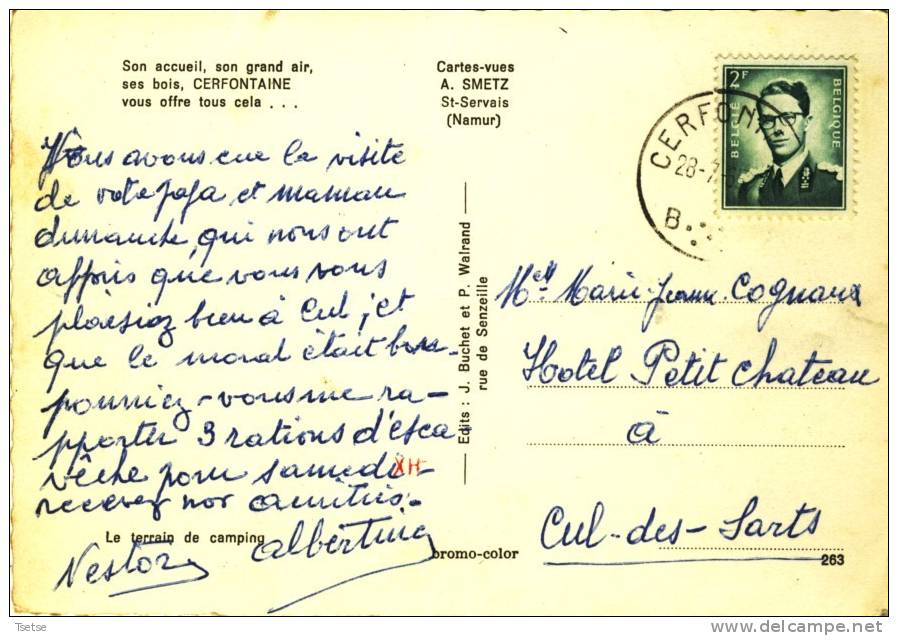 Son accueil, son grand air,
ses bois, CERFONTAINE
vous offre tous cela . . .
Cartes-vues
A. SMETZ
St-Servais
(Namur)
2F
BELGIË
BELGIQUE
CERFON
28-7-
B
Nous avons eue la visite
de votre papa et maman
dimanche, qui nous ont
appris que vous vous
plaisiez bien à Cul ; et
que le moral était bon.
pourriez-vous me ra-
pporter 3 rations d'esca-
vêche pour samedi XH
recevez nos amitiés.
Nestor Albertine
Le terrain de camping
Edits : J. Buchet et P. Walrand
rue de Senzeille
Melle Marie-Jeanne Cognaux
Hotel Petit Chateau
à
Cul-des-Sarts
bromo-color
263
Posted by: Tsetse
www.delcampe.net